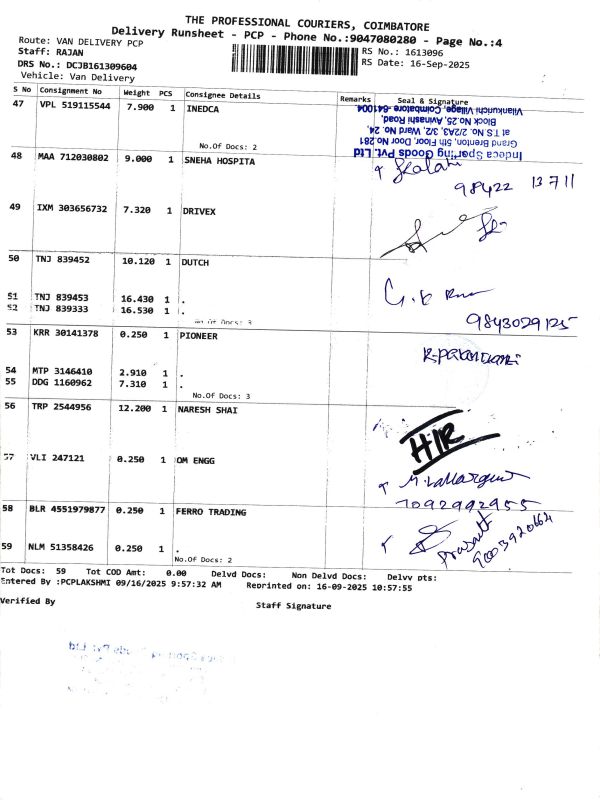 THE PROFESSIONAL COURIERS, COIMBATORE
Delivery Runsheet - PCP - Phone No.:9047080280 - Page No.:4
Route: VAN DELIVERY PCP
RS No.: 1613096
Staff: RAJAN
RS Date: 16-Sep-2025
DRS No.: DCJB161309604
Vehicle: Van Delivery
S No Consignment No Weight PCS Consignee Details Remarks Seal & Signature
47 VPL 519115544 7.900 1 INEDCA
Indeca Sporting Goods Pvt. Ltd
Grand Brenton, 5th Floor, Door No.281
at T.S No. 2, 32/2A3, 3/2, Ward No. 24,
Block No.25, Avinashi Road,
Vilankurichi Village, Coimbatore -641004
No.Of Docs: 2
48 MAA 712030802 9.000 1 SNEHA HOSPITA
98422 13711
49 IXM 303656732 7.320 1 DRIVEX
50 TNJ 839452 10.120 1 DUTCH
51 TNJ 839453 16.430 1 .
52 TNJ 839333 16.530 1 .
No.Of Docs: 3
9843029125
53 KRR 30141378 0.250 1 PIONEER
54 MTP 3146410 2.910 1 .
55 DDG 1160962 7.310 1 .
No.Of Docs: 3
56 TRP 2544956 12.200 1 NARESH SHAI
HIR
57 VLI 247121 0.250 1 OM ENGG
7092992955
58 BLR 4551979877 0.250 1 FERRO TRADING
Prasatt
9003920664
59 NLM 51358426 0.250 1 .
No.Of Docs: 2
Tot Docs: 59 Tot COD Amt: 0.00 Delvd Docs: Non Delvd Docs: Delvy pts:
Entered By :PCPLAKSHMI 09/16/2025 9:57:32 AM Reprinted on: 16-09-2025 10:57:55
Verified By
Staff Signature